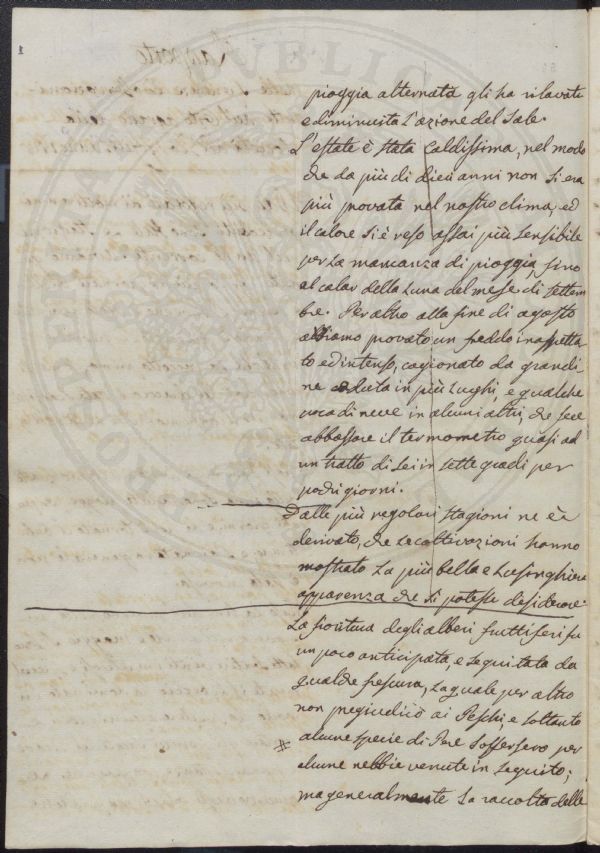 pioggia alternata gli ha rilavati
e diminuita l'azione del Sale.
L'estate è stata Caldissima, nel modo
che da più di dieci anni non si era
più provata nel nostro clima, ed
il calore si è reso assai più sensibile
per la mancanza di pioggia sino
al calar della Luna del mese di settem
bre. Per altro alla fine di agosto
abbiamo provato un freddo inaspetta
to ed intenso, cagionato da grandi
ne caduta in più luoghi, e qualche
poca di neve in alcuni altri, che fece
abbassare il termometro quasi ad
un tratto di sei in sette gradi per
pochi giorni.
Dalle più regolari stagioni ne è
derivato, che le coltivazioni hanno
mostrato la più bella e lusinghiera
apparenza che si potesse desiderare.
La fioritura degli alberi fruttiferi fu
un poco anticipata, e seguitata da
qualche frescura, la quale per altro
non pregiudicò ai Peschi, e soltanto
# alcune specie di Pere soffersero per
alcune nebbie venute in seguito;
ma generalmente la raccolta delle